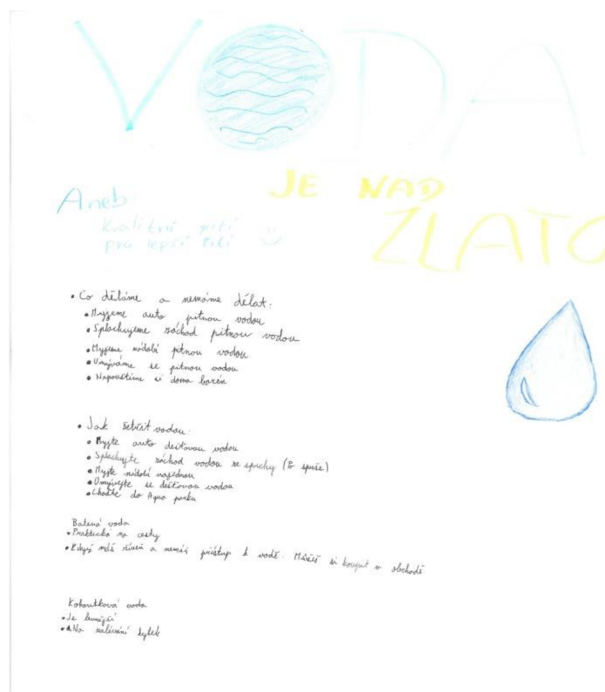 VODA
JE NAD
ZLATO
Aneb:
kvalitní pití
pro lepší žití
• Co děláme a nemáme dělat:
• Myjeme auto pitnou vodou
• Splachujeme záchod pitnou vodou
• Myjeme nádobí pitnou vodou
• Umýváme se pitnou vodou
• Napouštíme si doma bazén
• Jak šetřit vodou:
• Myjte auto dešťovou vodou
• Splachujte záchod vodou ze sprchy (z spršé)
• Myjte nádobí najednou
• Umývejte se dešťovou vodou
• Choďte do Aqua parku
Balená voda
• Praktická na cesty
• Když máš žízeň a nemáš přístup k vodě. Můžeš si koupit v obchodě
Kohoutková voda
• Je levnější
• Na zalévání kytek